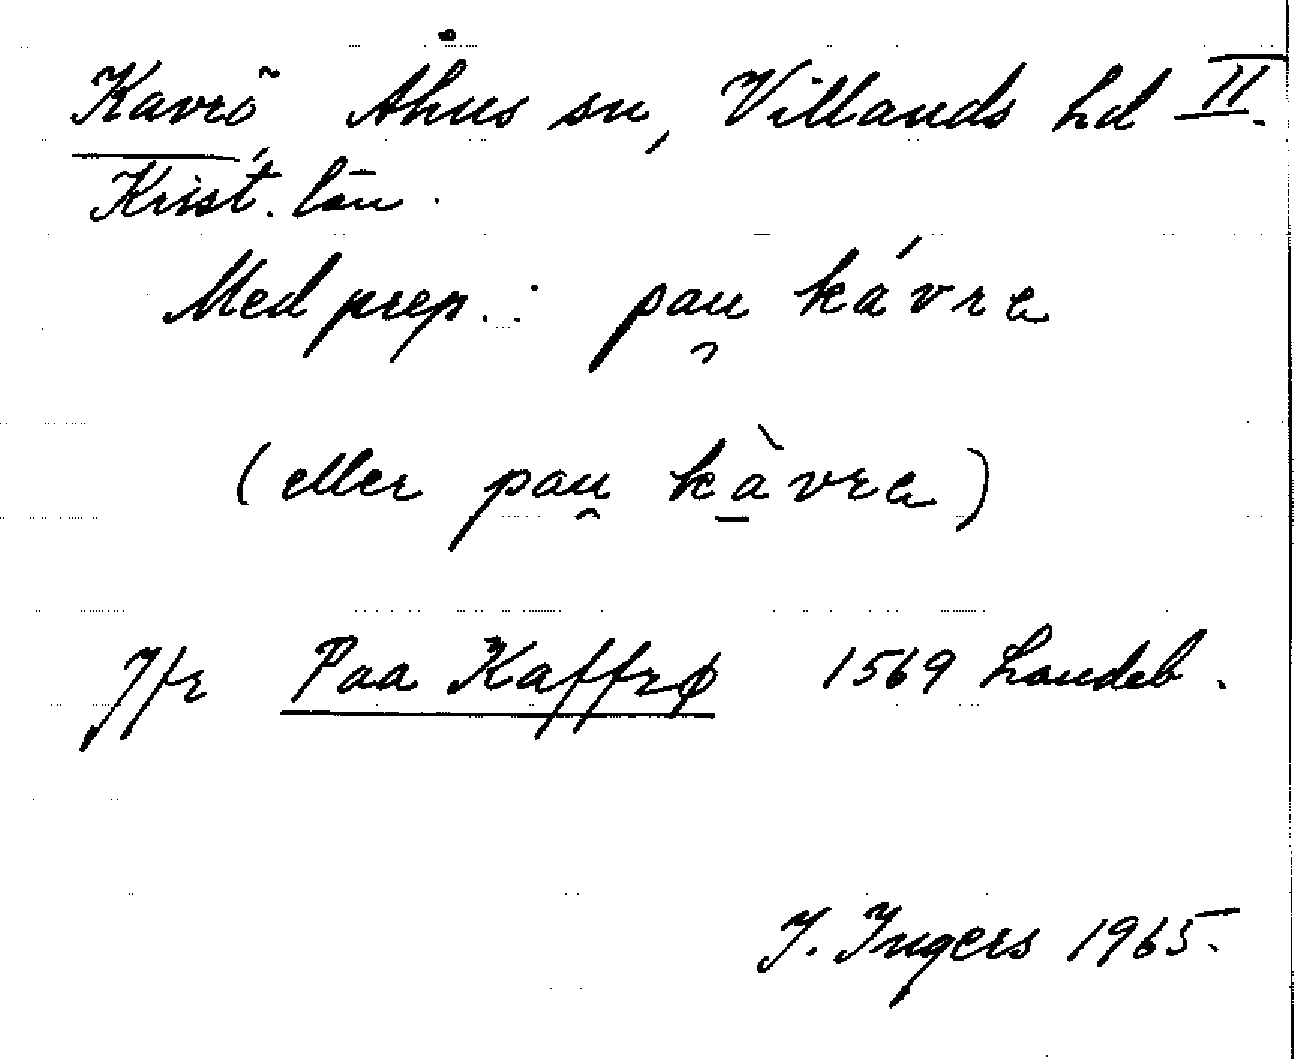 Kavrö Åhus sn, Villands hd II.
Krist. län.
Med prep.: pau̯ kávrɐ
(eller pau̯ kà̱vrɐ)
Jfr Paa Kaffrø 1569 Landeb.
I. Ingers 1965.